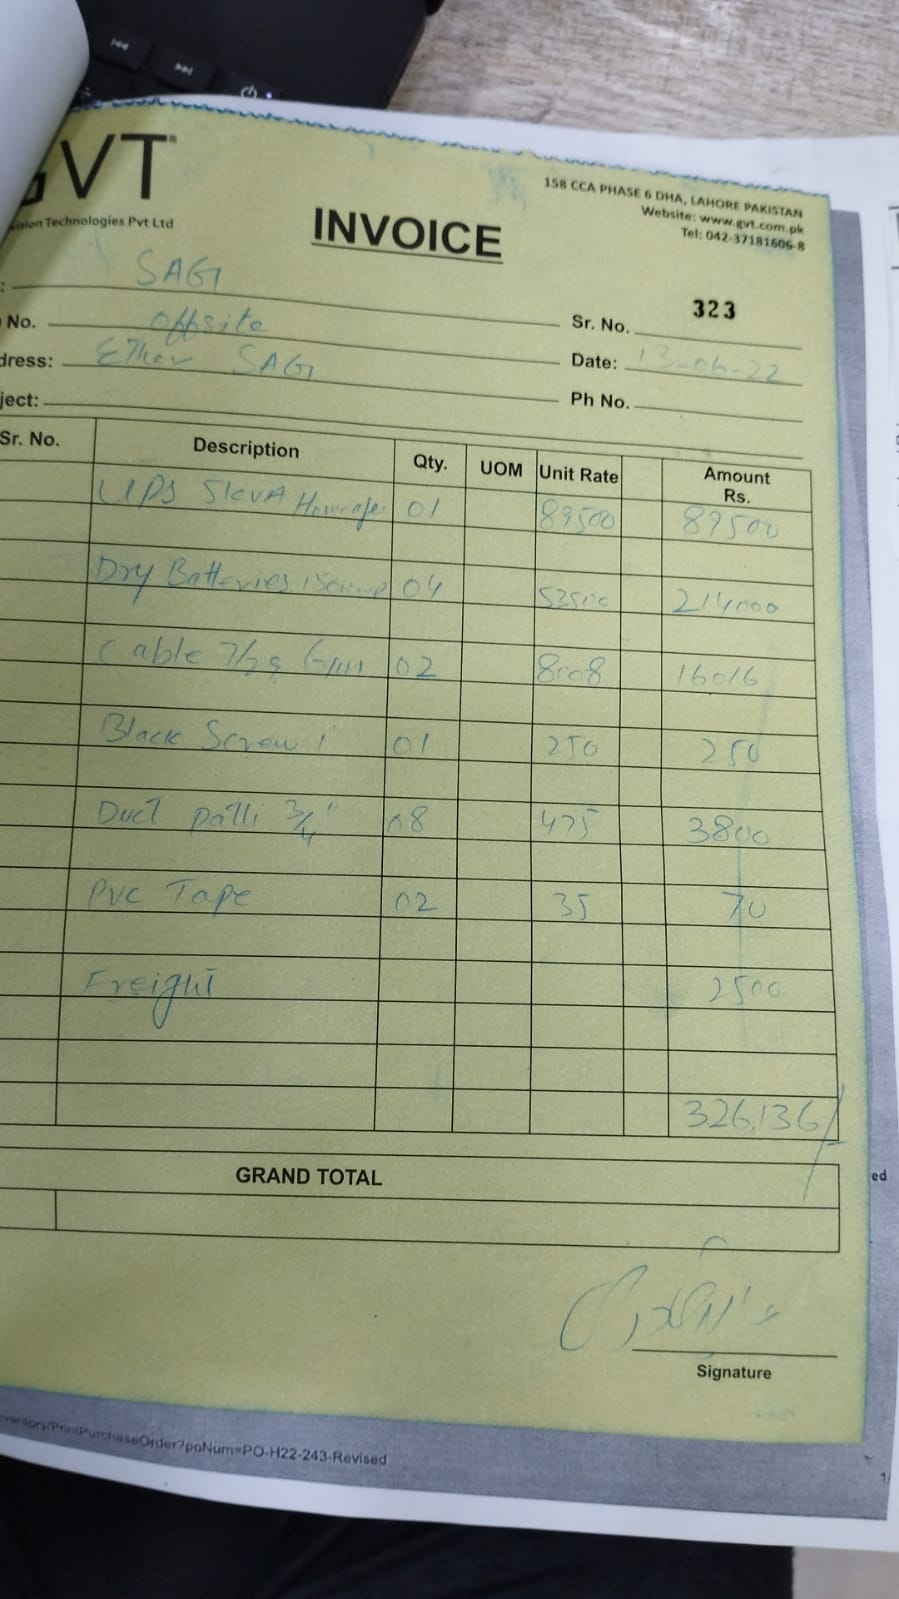 GVT
ision Technologies Pvt Ltd
158 CCA PHASE 6 DHA, LAHORE PAKISTAN
Website: www.gvt.com.pk
Tel: 042-37181606-8
INVOICE
: SAGI
No. offsite Sr. No. 323
dress: SAGI Date: 13-06-22
ject: Ph No.
Sr. No. Description Qty. UOM Unit Rate Amount Rs.
UPS 5kVA Homeage 01 89500 89500
Dry Batteries 150Amp 04 53500 214000
Cable 7/29 02 8008 16016
Black Screw 1' 01 250 250
Duct patti 3/4' 08 475 3800
PVC Tape 02 35 70
Freight 2500
326,136/
GRAND TOTAL
Signature
ventory/PrintPurchaseOrder?poNum=PO-H22-243-Revised
1/
ed